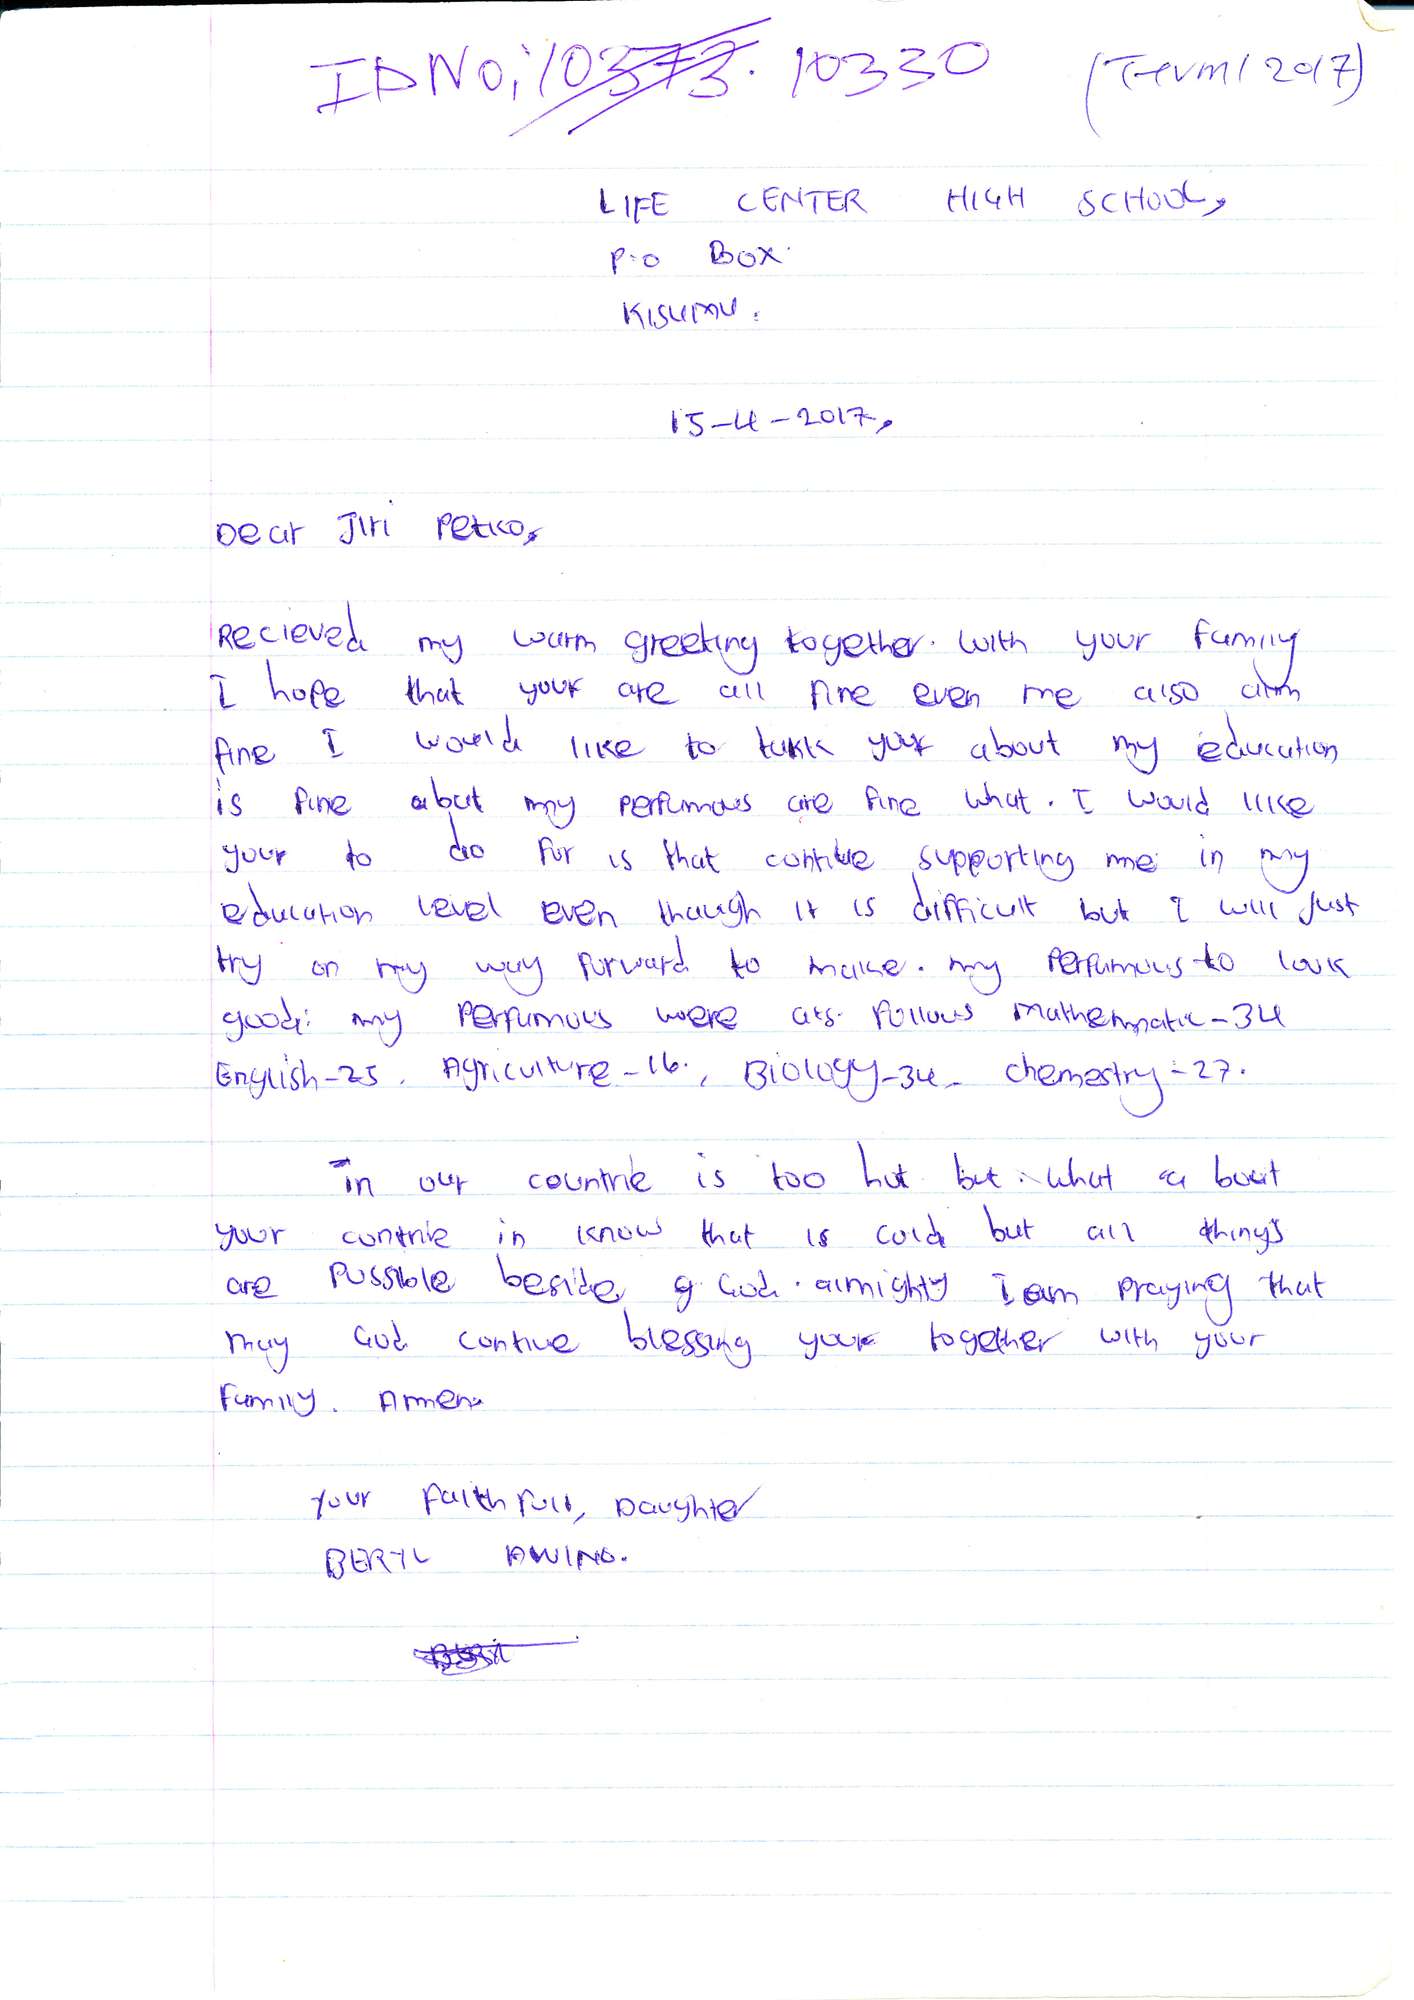 IDNo; 10373. 10330 (Term 1 2017)
LIFE CENTER HIGH SCHOOL,
P.O BOX.
KISUMU.
15-4-2017,
Dear Jiri Petko,
Recieved my warm greeting together. with your family
I hope that your are all fine even me also am
fine I would like to takk your about my education
is fine abut my perfumous are fine what. I would like
your to do for is that contiue supporting me in my
education level even though it is difficult but I will just
try on my way forward to make. my perfumous to look
good: my perfumous were as follows mathematic-34
English-25, Agriculture-16., Biology-34- chemestry-27.
In our countrie is too hot but what a bout
your contrie in know that is cold but all things
are possible beside g God. almighty I am praying that
may God contiue blessing your together with your
family. Amen.
Your faithfull, Daughter
BERYL AWINO.